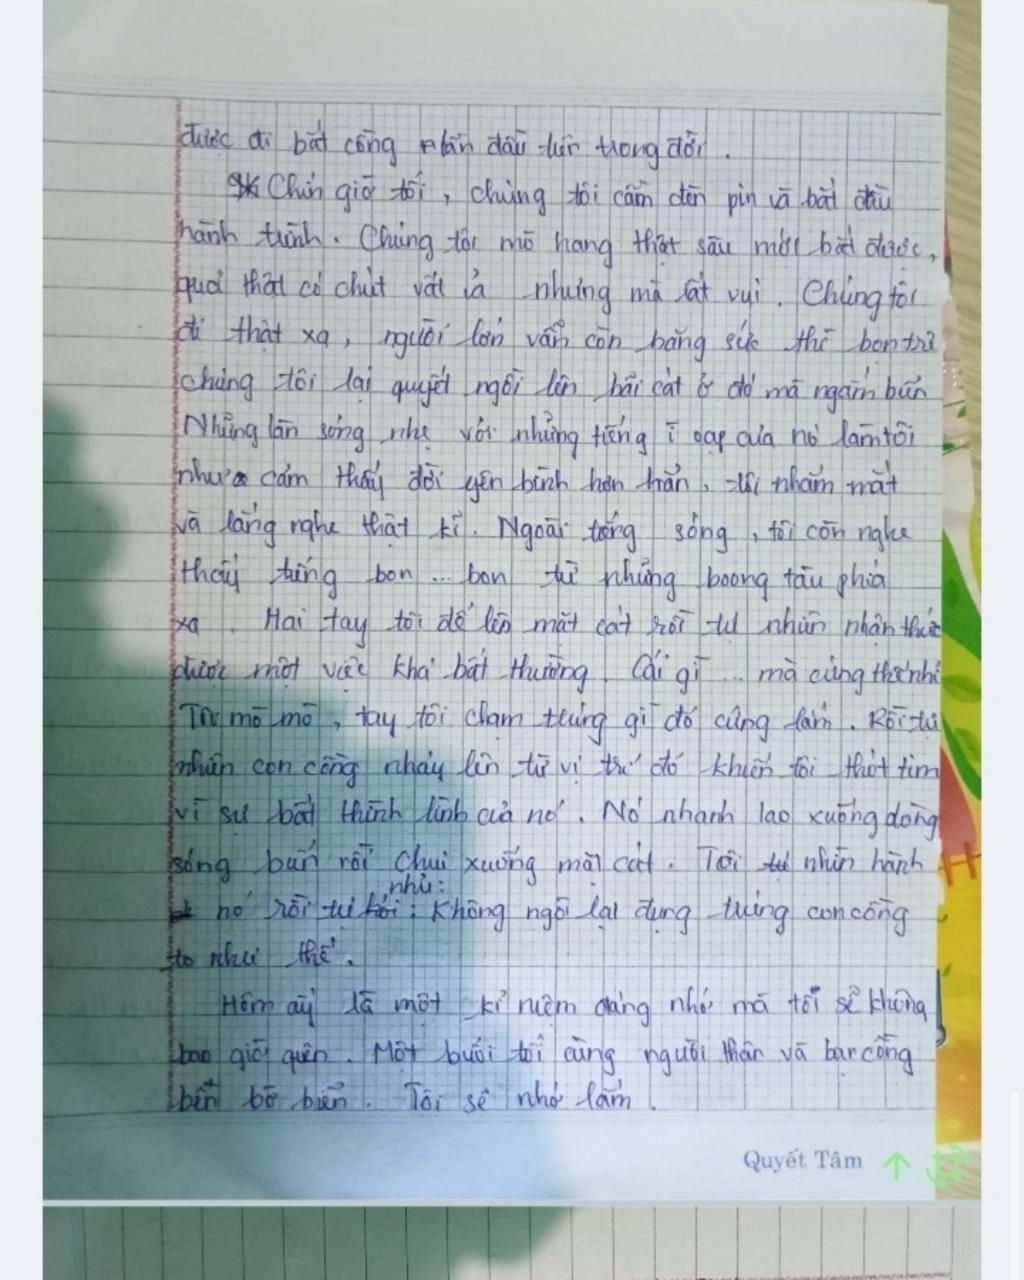 được đi bắt còng lần đầu tiên trong đời.
Chín giờ tối, chúng tôi cầm đèn pin và bắt đầu
hành trình. Chúng tôi mò hang thật sâu mới bắt được,
quả thật có chút vất vả nhưng mà rất vui. Chúng tôi
đi thật xa, người lớn vẫn còn hăng sức thì bọn trẻ
chúng tôi lại quyết ngồi lên bãi cát ở đó mà ngắm biển
Những làn sóng nhẹ với những tiếng ì oạp của nó làm tôi
như cảm thấy đời yên bình hơn hẳn, tôi nhắm mắt
và lắng nghe thật kĩ. Ngoài tiếng sóng, tôi còn nghe
thấy tiếng bon ... bon từ những boong tàu phía
xa. Hai tay tôi để lên mặt cát rồi tự nhiên nhận thức
được một việc khá bất thường. Cái gì ... mà cứng thế nhỉ
Tò mò mò, tay tôi chạm trúng gì đó cứng lắm. Rồi tự
nhiên con còng nhảy lên từ vị trí đó khiến tôi thót tim
vì sự bất thình lình của nó. Nó nhanh lao xuống dòng
sóng biển rồi chui xuống mặt cát. Tôi nhìn hành
nó rồi tự nhủ: Không ngờ lại đụng trúng con còng
to như thế.
Hôm ấy là một kỉ niệm đáng nhớ mà tôi sẽ không
bao giờ quên. Một buổi tối cùng người thân và bạn còng
bên bờ biển. Tôi sẽ nhớ lắm.
Quyết Tâm